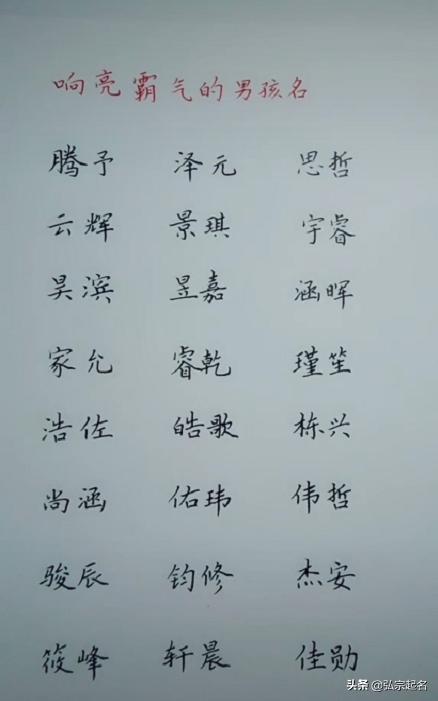 响亮霸气的男孩名
腾予 泽元 思哲
云辉 景琪 宇睿
昊滨 昱嘉 涵晖
家允 睿乾 瑾笙
浩佐 皓歌 栋兴
尚涵 佑玮 伟哲
骏辰 钧修 杰安
筱峰 轩晨 佳勋
头条 @弘宗起名